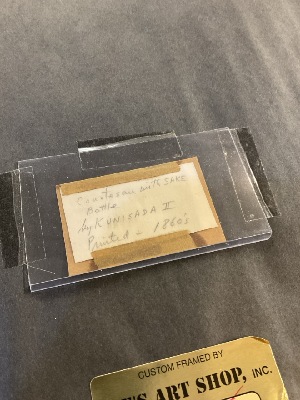 Courtesan with SAKE
Bottle
by KUNISADA II
Printed - 1860's
CUSTOM FRAMED BY
'S ART SHOP, INC.